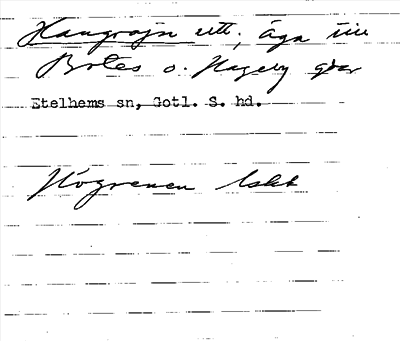 Haugrojr utt., äga till
Botes o. Hageby gdar
Etelhems sn, Gotl. S. hd.
Högrenen lskt